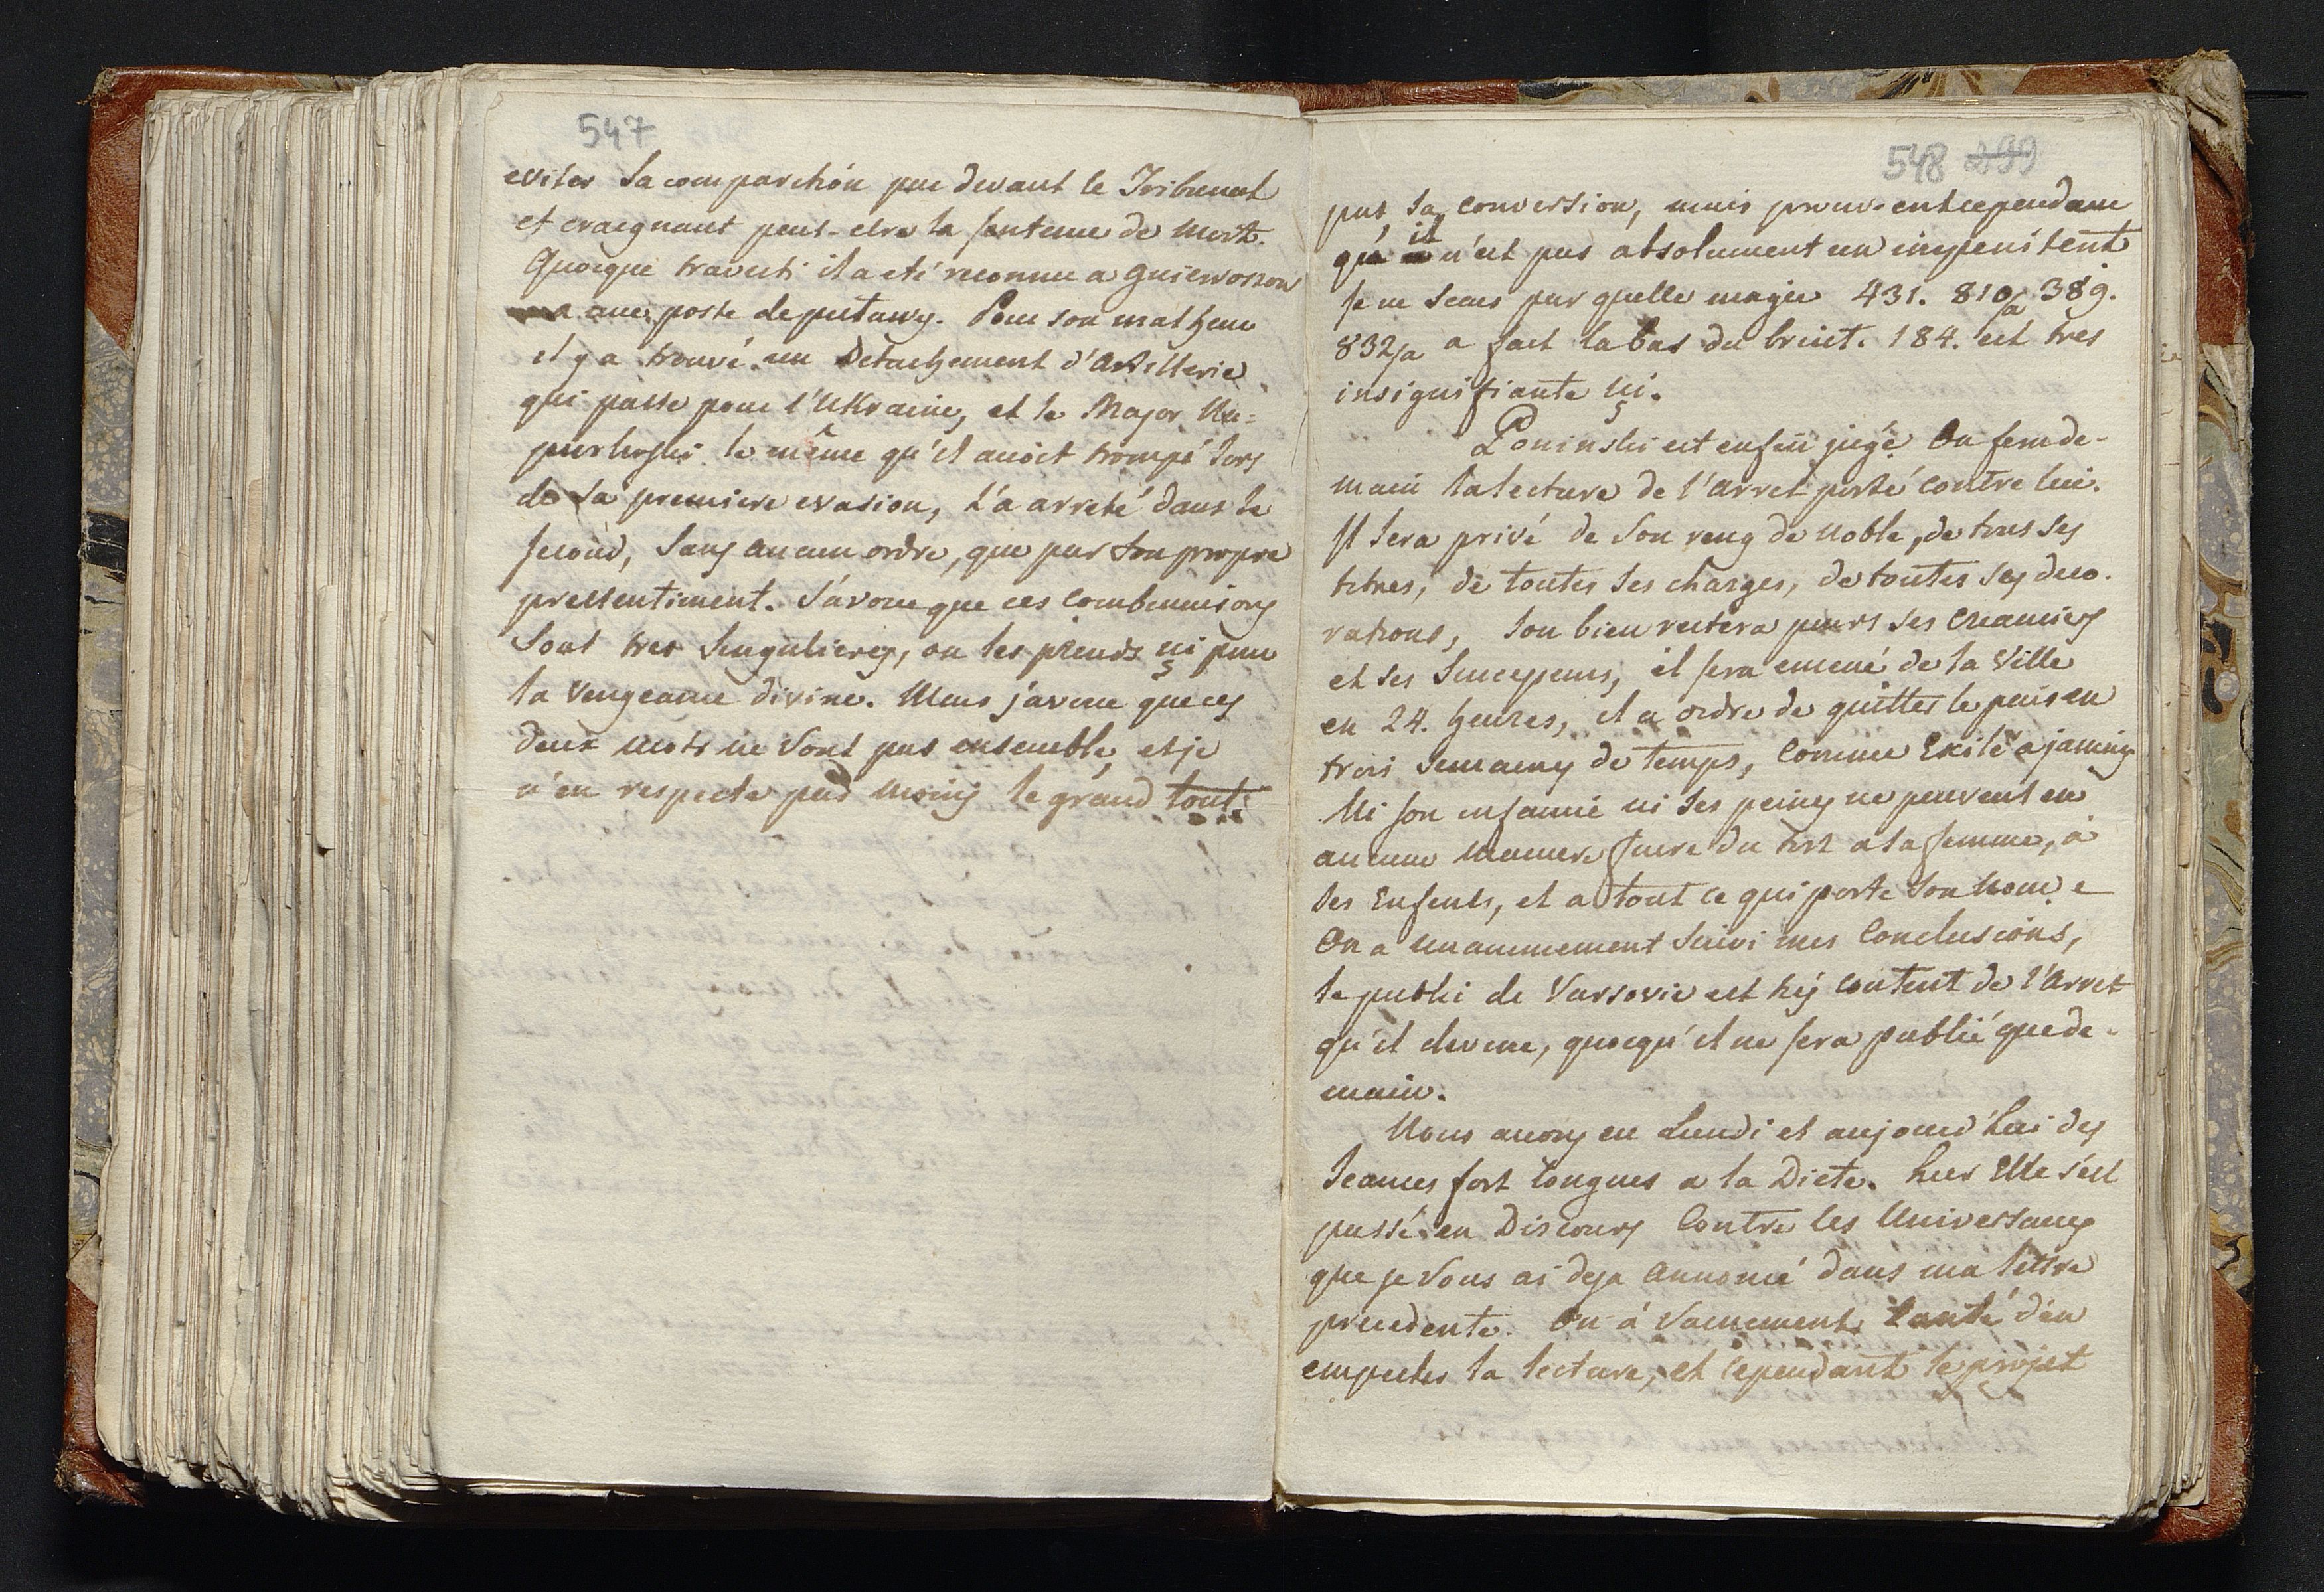 547
eviter sa comparition par devant le Tribunal
et craignant peut-etre la sentence de mort.
Quoique travesti il a eté reconnu a Gniewoszow
aux porte de puławy. Pour son malheur
il y a trouvé un Detachement d'Artillerie
qui passe pour l'Ukraine, et le Major
le même qu'il avoit trompé lors
de sa premiere evasion, l'a arreté dans le
second, sans aucun ordre, que par son propre
pressentiment. J'avoue que ces combinaisons
sont tres singulieres, on les prends içi pour
la vengeance divine. Mais j'avoue que ces
deux mots ne vont pas ensemble, et je
n'en respecte pas moins le grand tout.
548 299
pas sa conversion, mais prouve cependant
qu'il n'est pas absolument un impenitent
Je ne scais par quelle magie 431. 810/a 389.
832/a a fait la bas du bruit. 184. est tres
insignifiante içi.
Poninski est enfin jugé. On fera de-
main la lecture de l'arret porté contre lui.
Il sera privé de son rang de noble, de tous ses
titres, de toutes ses charges, de toutes ses deco-
rations, son bien restera pour ses creanciers
et ses successeurs, il sera emené de la ville
en 24. heures, il a ordre de quitter le pais en
trois semaines de temps, comme Exilé a jamais
Ni son infamie ni ses peines ne peuvent en
aucune maniere faire du tort a sa femme, à
ses Enfents, et a tout ce qui porte son nom.
On a unanimement suivi mes conclusions,
le public de Varsovie est tres content de l'Arret
qu'il devine, quoiqu'il ne sera publié que de-
main.
Nous avons eu Lundi et aujourd'hui des
seances fort longues a la Diete. hier Elle s'est
passé en Discours contre les Universaux
que je vous ai deja annoncé dans ma lettre
precedente. On à vainement tanté d'en
empecher la lecture, et cependant le projet